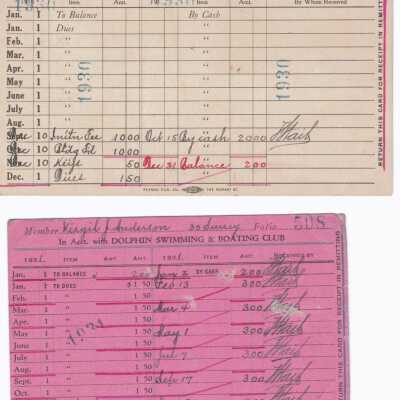 1930 Item Amt. Item Amt. By Whom Received
Jan. 1 To Balance By Cash
Jan. 1 Dues "
Feb. 1 " "
Mar. 1 " "
Apr. 1 " "
May 1 " "
June 1 " "
July 1 " "
Aug. 1 " "
10 Initn Fee 10 00 Oct 15 By cash 20 00
Dec 10 Bldg Fd 10 00
10 Keys 50 Dec 31 Balance 2 00
Dec. 1 Dues 1 50
1930
1930
RETURN THIS CARD FOR RECEIPT IN REMITTING
Member Virgil J Anderson 30 Surrey Folio 508
In Acct. with DOLPHIN SWIMMING & BOATING CLUB
193 . ITEM AMT. 193 . ITEM AMT. RECEIVED BY
Jan. 1 TO BALANCE 2 00 Jan 2 BY CASH 2 00
Jan. 1 TO DUES 1 50 Feb 13 3 00
Feb. 1 " 1 50
Mar. 1 " 1 50 Mar 4 " 3 00
Apr. 1 " 1 50
May 1 " 1 50 May 1 " 3 00
June 1 " 1 50
July 1 " 1 50 July 7 " 3 00
Aug. 1 " 1 50
Sept. 1 " 1 50 Sep 17 " 3 00
Oct. 1 " 1 50
1 50 3 00
1931
RETURN THIS CARD FOR RECEIPT IN REMITTING